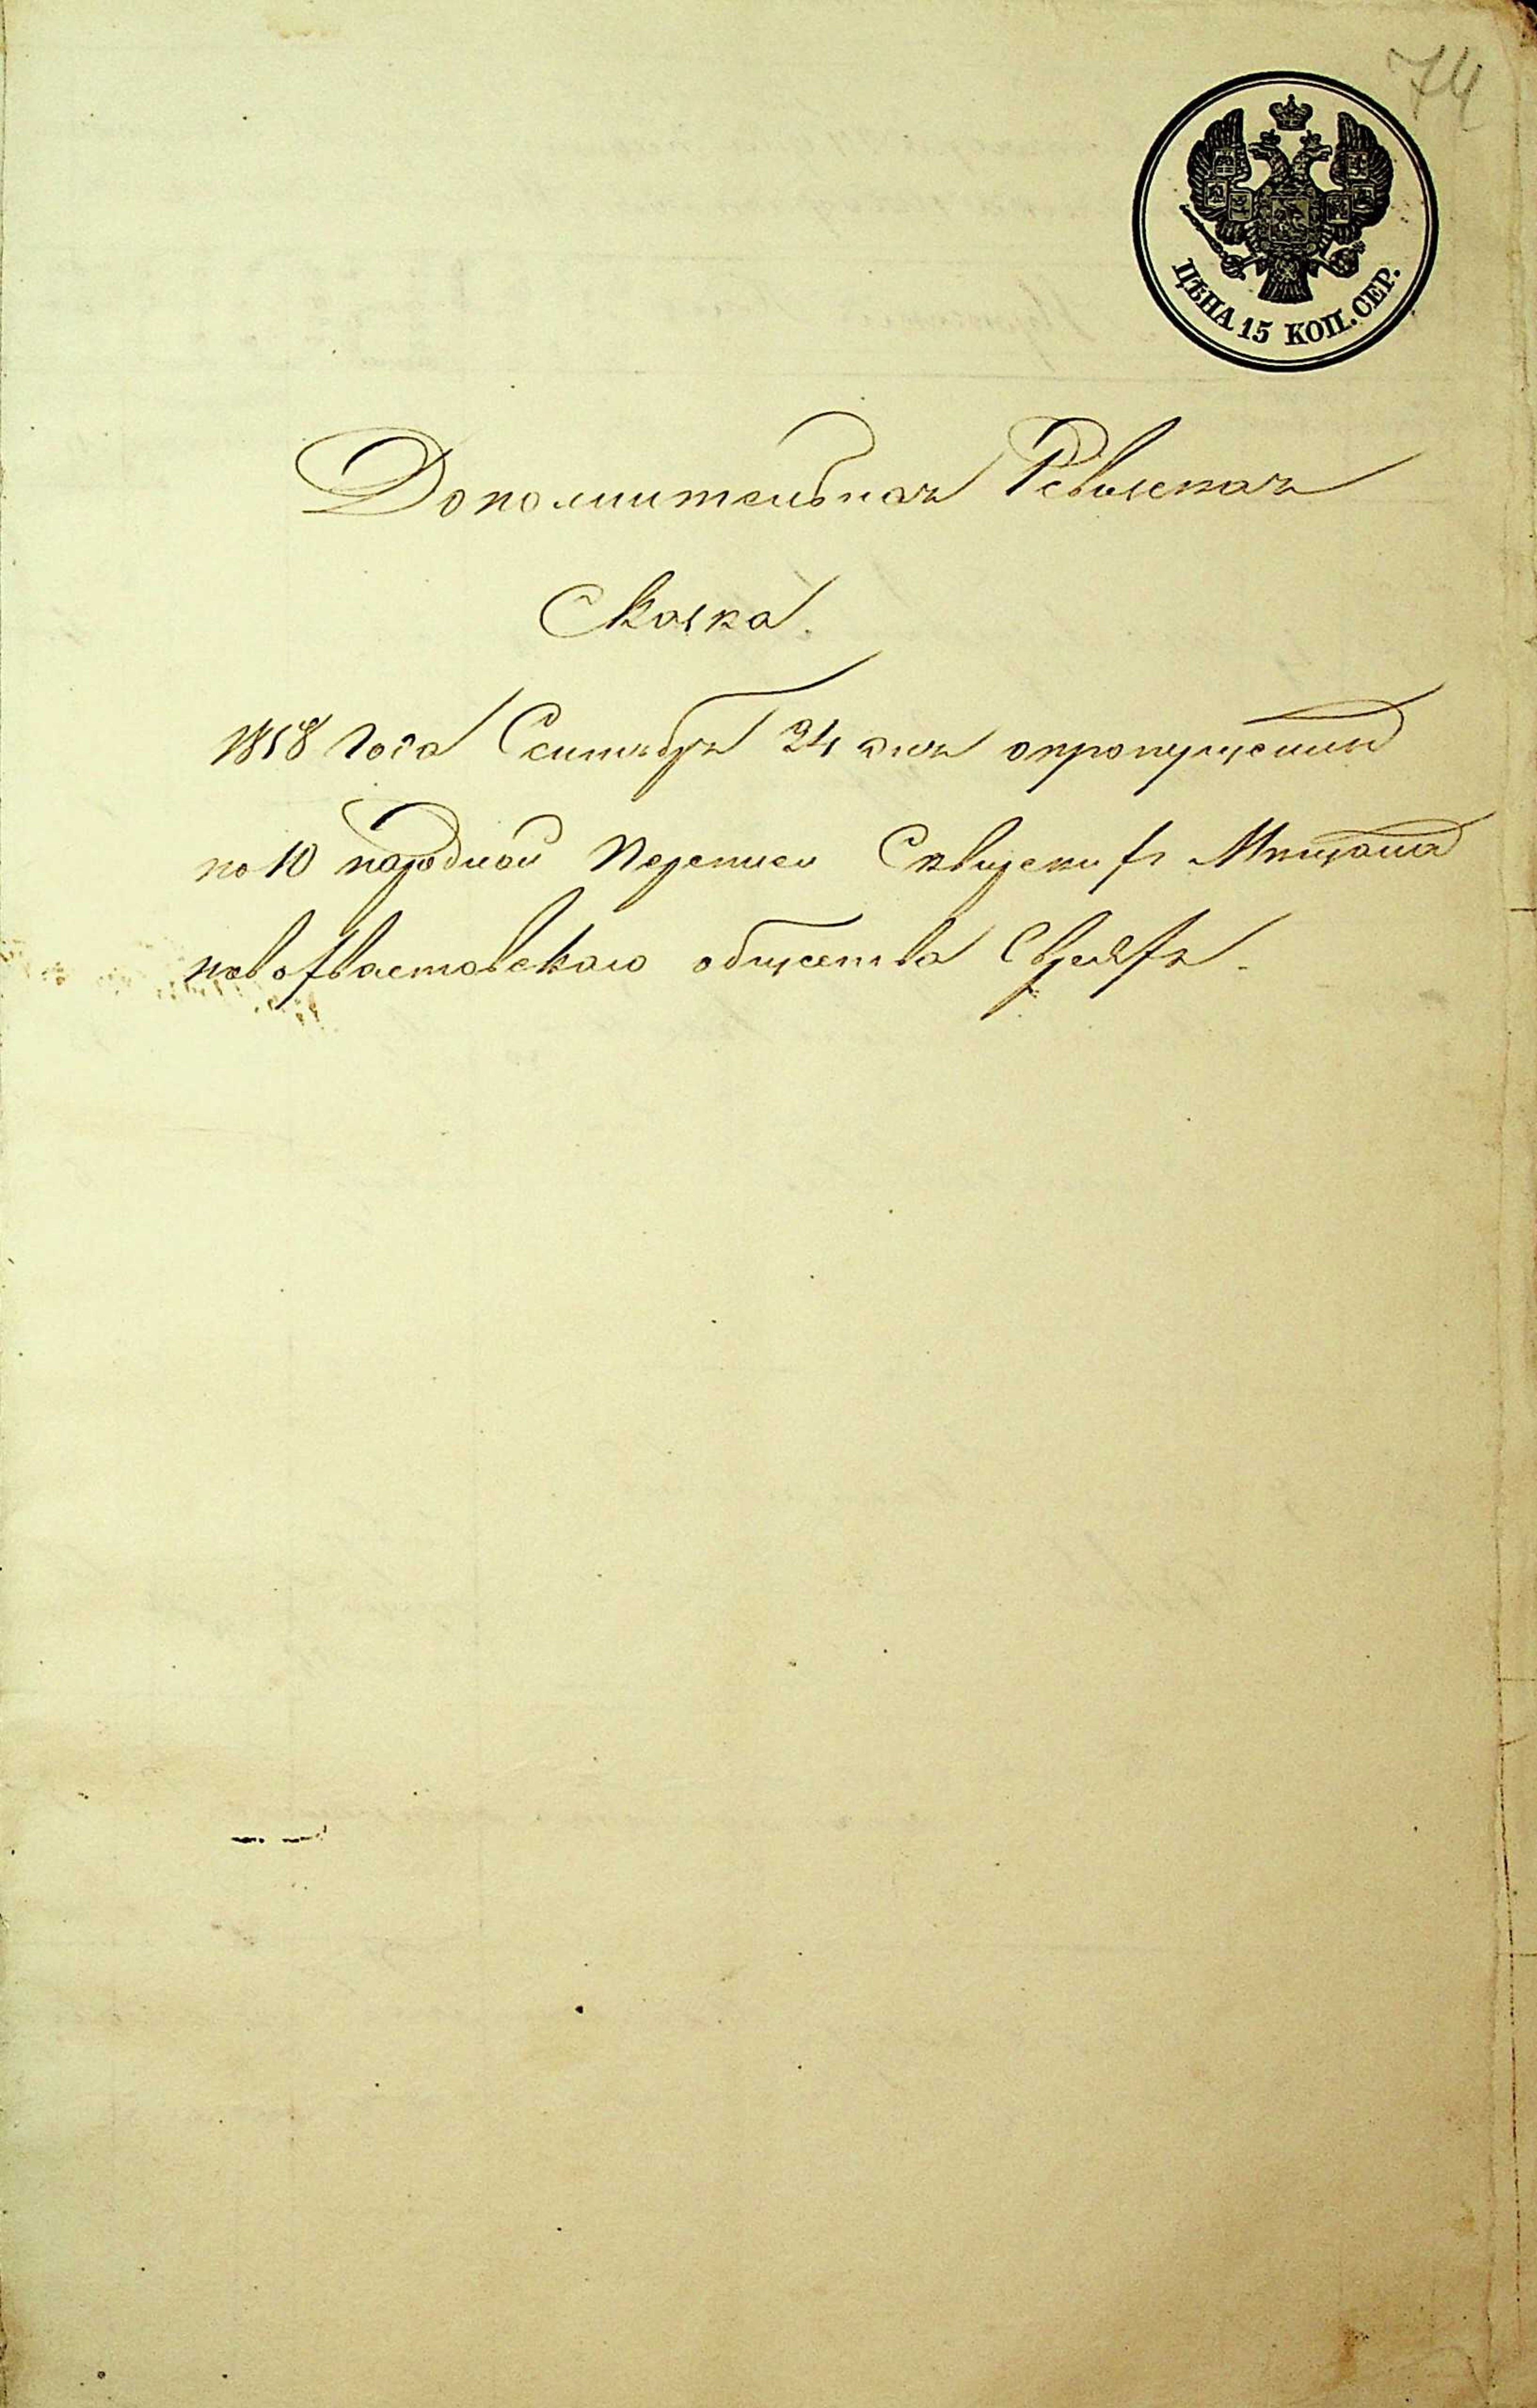 74
ЦѢНА 15 КОП. СЕР.
Дополнительная Ревизская
Сказка.
1858 Года Сентября 24 дня о пропущенныхъ
по 10 народной Переписи Сквирскихъ Мещанах
новофастовскаго общества Евреяхъ.